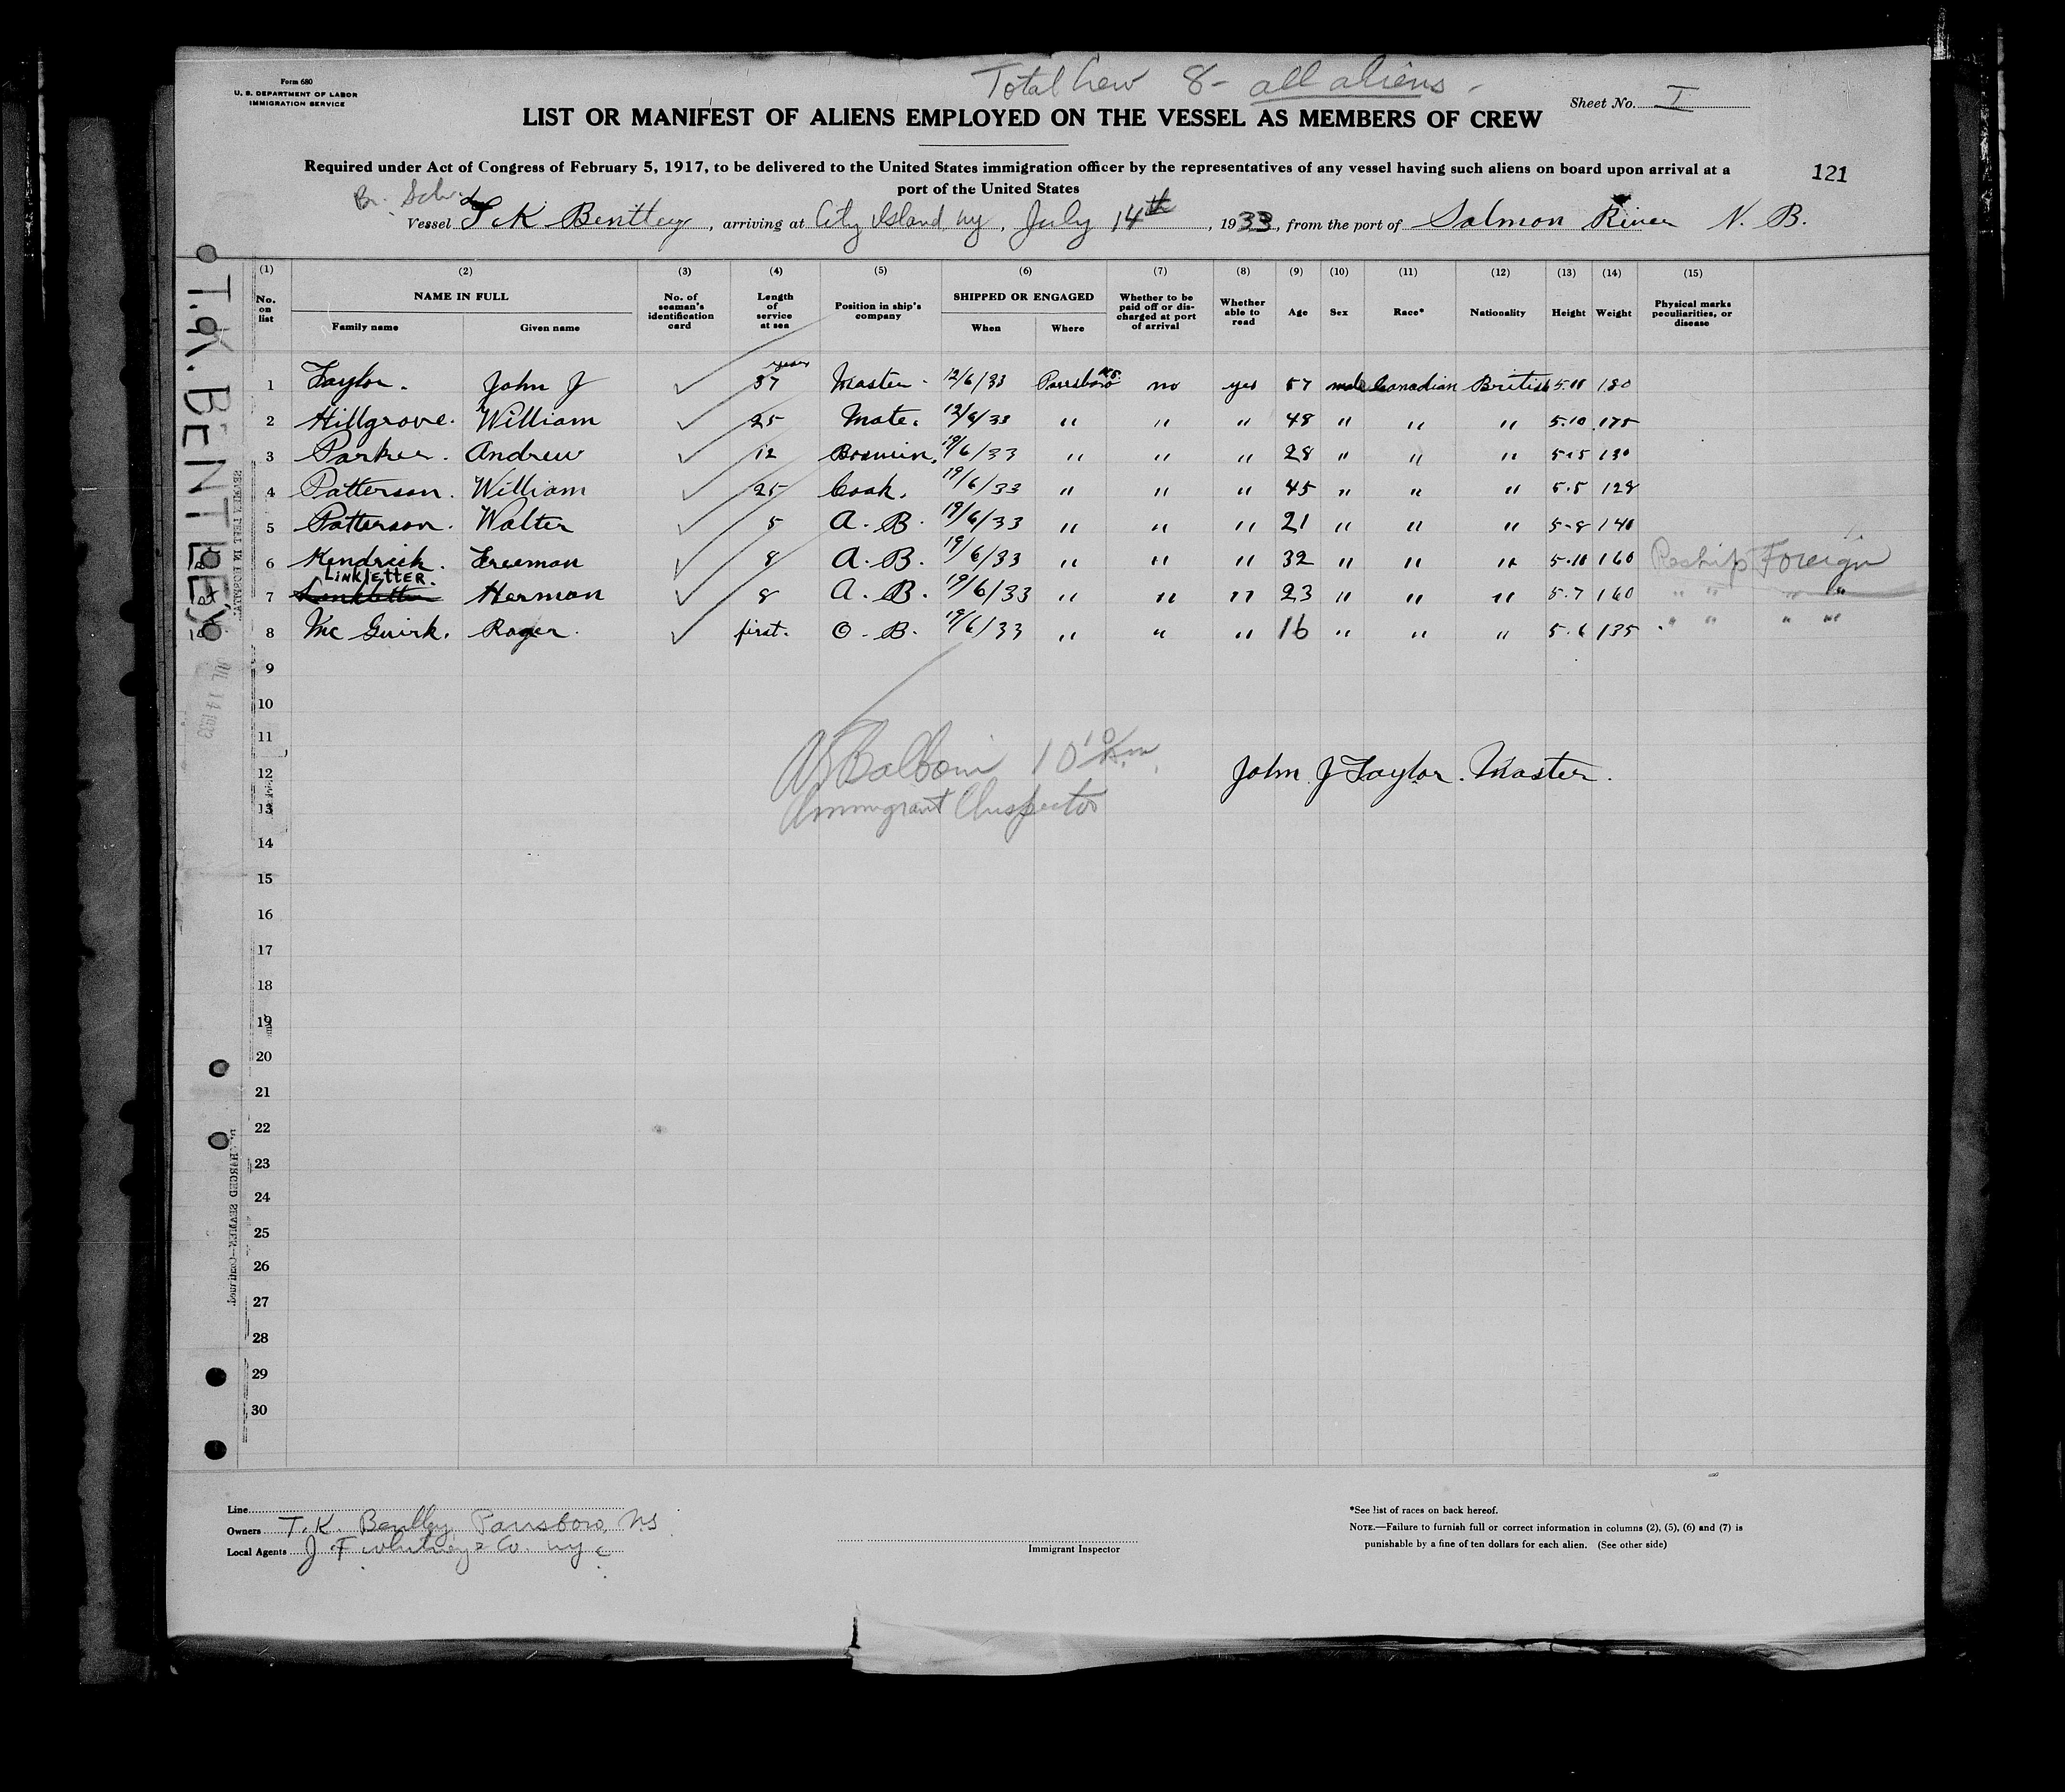 Form 680
U. S. DEPARTMENT OF LABOR
IMMIGRATION SERVICE
Total Crew 8 - all aliens -
Sheet No. I
LIST OR MANIFEST OF ALIENS EMPLOYED ON THE VESSEL AS MEMBERS OF CREW
Required under Act of Congress of February 5, 1917, to be delivered to the United States immigration officer by the representatives of any vessel having such aliens on board upon arrival at a
port of the United States
121
Br. Sch.
Vessel T K Bentley, arriving at City Island, ny, July 14th, 1933, from the port of Salmon River N. B.
T.K. BENTLEY
(1) (2) (3) (4) (5) (6) (7) (8) (9) (10) (11) (12) (13) (14) (15)
No. on list NAME IN FULL Family name Given name No. of seaman's identification card Length of service at sea Position in ship's company SHIPPED OR ENGAGED When Where Whether to be paid off or discharged at port of arrival Whether able to read Age Sex Race* Nationality Height Weight Physical marks peculiarities, or disease
1 Taylor. John J ✓ 37 years Master. 12/6/33 Parrsboro NS. no yes 57 male Canadian British 5.11 180
2 Hillgrove. William ✓ 25 Mate. 12/6/33 " " " 48 " " " 5.10 175
3 Parker. Andrew ✓ 12 19/6/33 " " " 28 " " " 5.5 130
4 Patterson. William ✓ 25 Cook. 19/6/33 " " " 45 " " " 5.5 128
5 Patterson. Walter ✓ 5 A. B. 19/6/33 " " " 21 " " " 5-8 140
6 Kendrick. Freeman ✓ 8 A. B. 19/6/33 " " " 32 " " " 5.10 160 Reship Foreign
LINKLETTER.
7 Herman ✓ 8 A. B. 19/6/33 " " " 23 " " " 5.7 160 " " " "
8 Mc Guirk. Roger. ✓ first. O. B. 19/6/33 " " " 16 " " " 5.6 135 " " " "
9
10
11
12
13
14
15
16
17
18
19
20
21
22
23
24
25
26
27
28
29
30
Immigrant Inspector
John J Taylor. Master.
JUL 14 1933
Line
Owners T. K. Bentley, Parrsboro, NS
Local Agents J F Whitney & Co. nyc
Immigrant Inspector
*See list of races on back hereof.
NOTE.—Failure to furnish full or correct information in columns (2), (5), (6) and (7) is
punishable by a fine of ten dollars for each alien. (See other side)